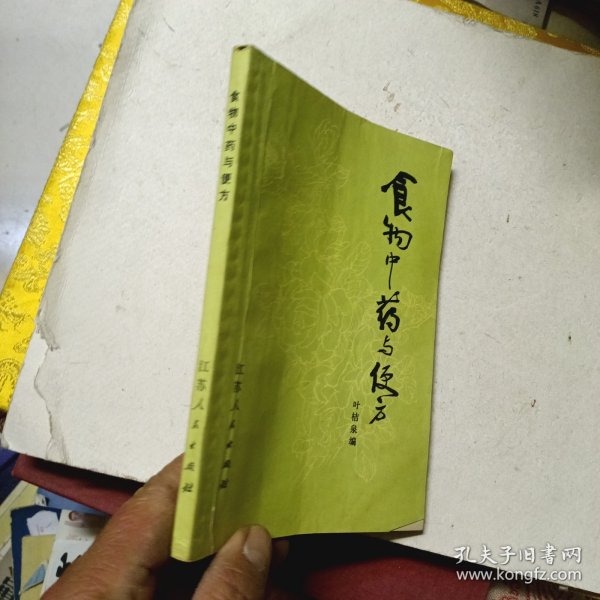 食物中药与便方
叶桔泉编
江苏人民出版社
食物中药与便方
江苏人民出版社
孔夫子旧书网
www.kongfz.com